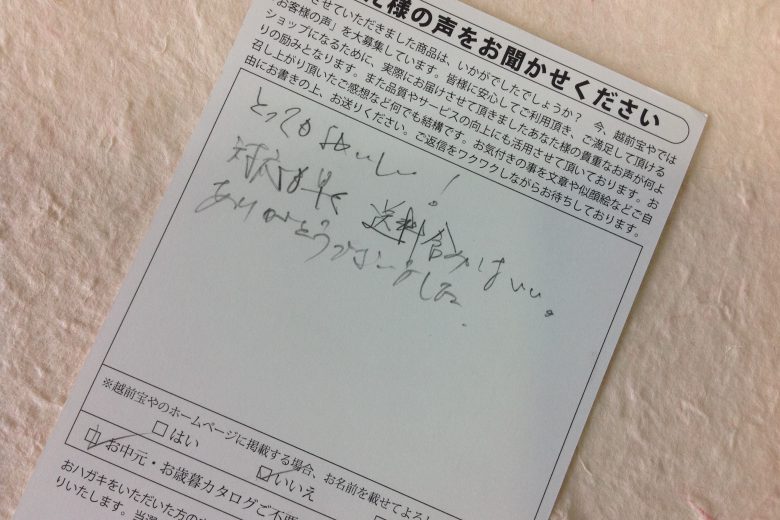 た様の声をお聞かせください
させていただきました商品は、いかがでしたでしょうか? 今、越前宝やでは
お客様の声」を大募集しています。皆様に安心してご利用頂き、ご満足して頂ける
ショップになるために、実際にお届けさせて頂きましたあなた様の貴重なお声が何よ
りの励みとなります。また品質やサービスの向上にも活用させて頂いております。お
召し上がり頂いたご感想など何でも結構です。お気付きの事を文章や似顔絵などご自
由にお書きの上、お送りください。ご返信をワクワクしながらお待ちしております。
とってもおいしい!
対応も早く 送料含みはいい。
ありがとうございました.
※越前宝やのホームページに掲載する場合、お名前を載せてよろし
□はい
□いいえ
□お中元・お歳暮カタログご不要
おハガキをいただいた方の
りいたします。当選